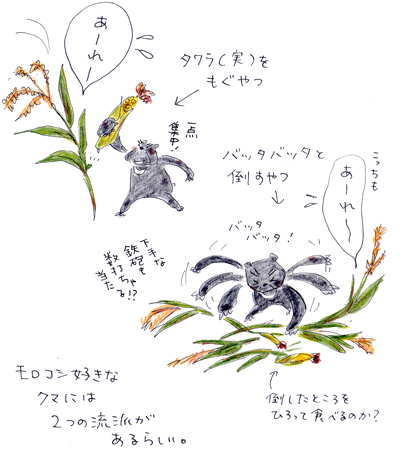 あーれー
タワラ(実)を
もぐやつ
一点
集中!
バッタバッタと
倒すやつ
こっちも
あーれ〜
バッタ
バッタ!
下手な
鉄砲も
数打ちゃ
当たる!?
モロコシ好きな
クマには
2つの流派が
あるらしい。
倒したところを
ひろって食べるのか?